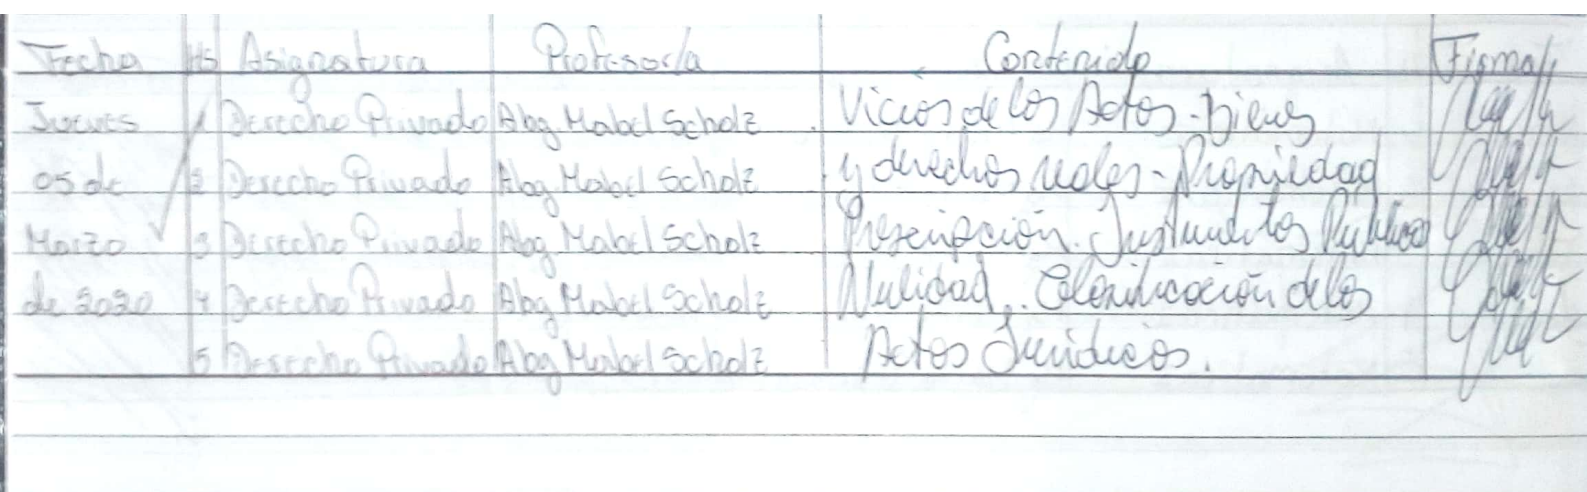 Fecha Hs Asignatura Profesor/a Contenido Firma
Jueves 1 Derecho Privado Abg Mabel Scholz Vicios de los Actos - Bienes
05 de 2 Derecho Privado Abg Mabel Scholz y derechos reales - Propiedad
Marzo 3 Derecho Privado Abg Mabel Scholz Prescripción. Instrumentos Públicos
de 2020 4 Derecho Privado Abg Mabel Scholz Nulidad. Clasificación de los
5 Derecho Privado Abg Mabel Scholz Actos Jurídicos.